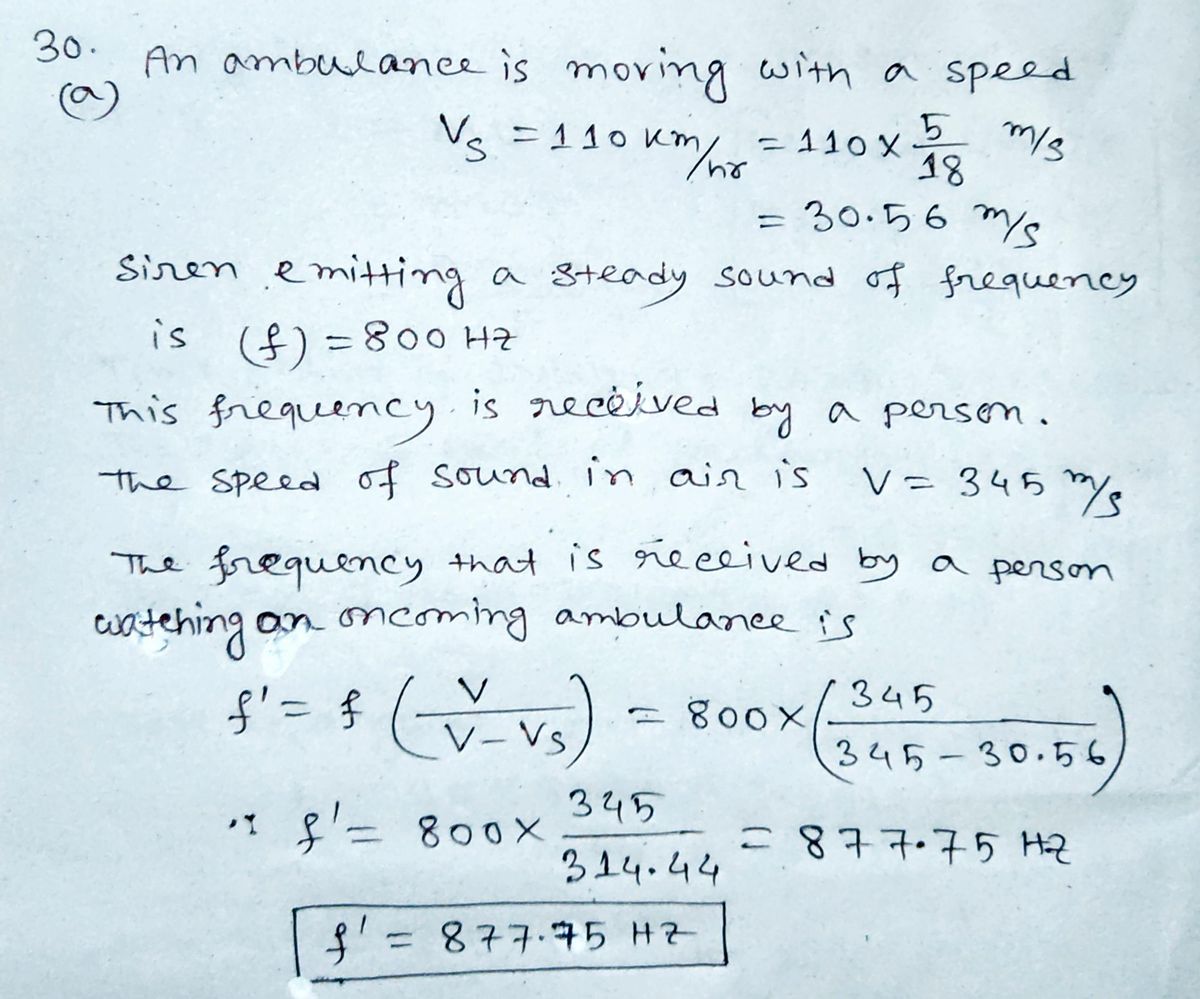 30. An ambulance is moving with a speed
(a)
Vs = 110 km/hr = 110 × 5/18 m/s
= 30.56 m/s
Siren emitting a steady sound of frequency
is (f) = 800 Hz
This frequency is received by a person.
The speed of sound in air is V = 345 m/s
The frequency that is received by a person
watching an oncoming ambulance is
f' = f (V/(V - Vs)) = 800 × (345/(345 - 30.56))
∴ f' = 800 × 345/314.44 = 877.75 Hz
f' = 877.75 Hz